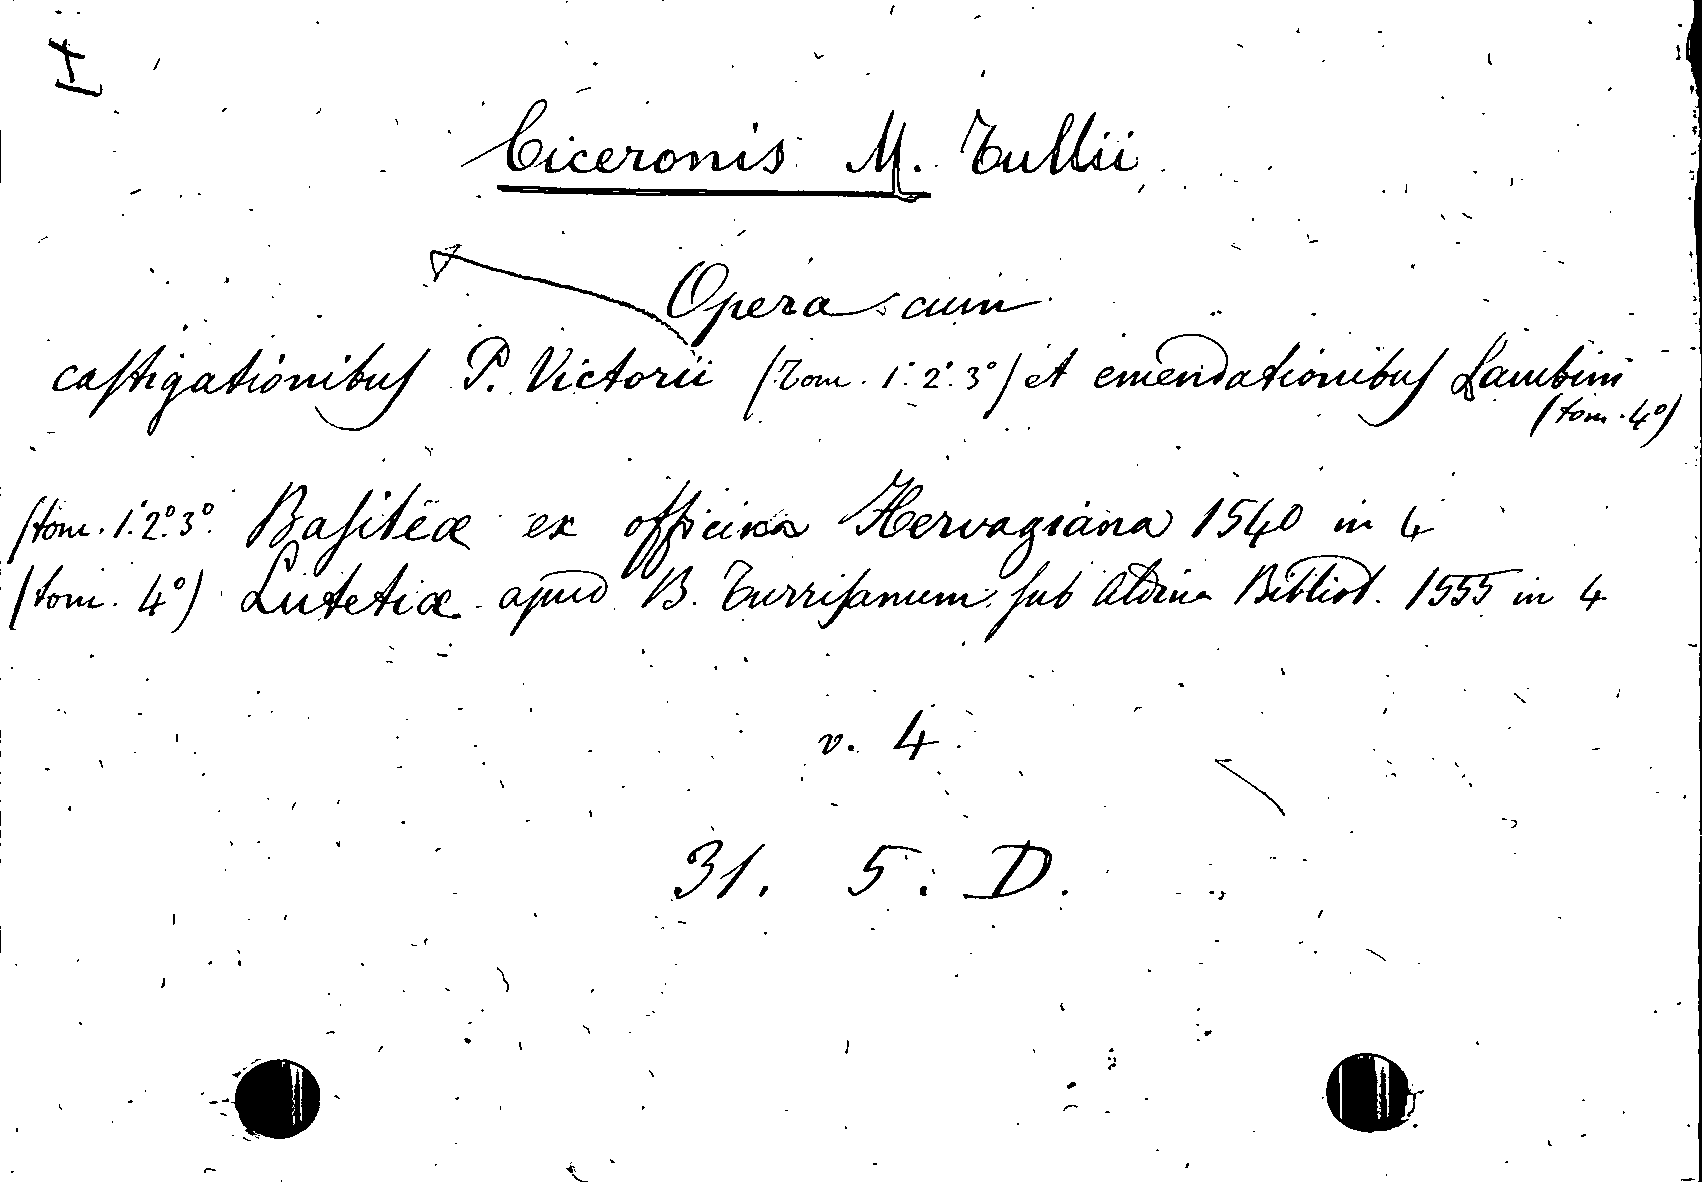 Ciceronis M. Tullii
Opera cum
caſtigationibuſ P. Victorii (Tom. 1.° 2.° 3°) et emendationibuſ Lambini
(tom. 4°)
(tom. 1.° 2.° 3°. Baſileæ ex officina Hervagiana 1540 in 4
(tom. 4°) Lutetiæ apud B. Turriſanum ſub Aldina Bibliot. 1555 in 4
v. 4
31. 5. D.